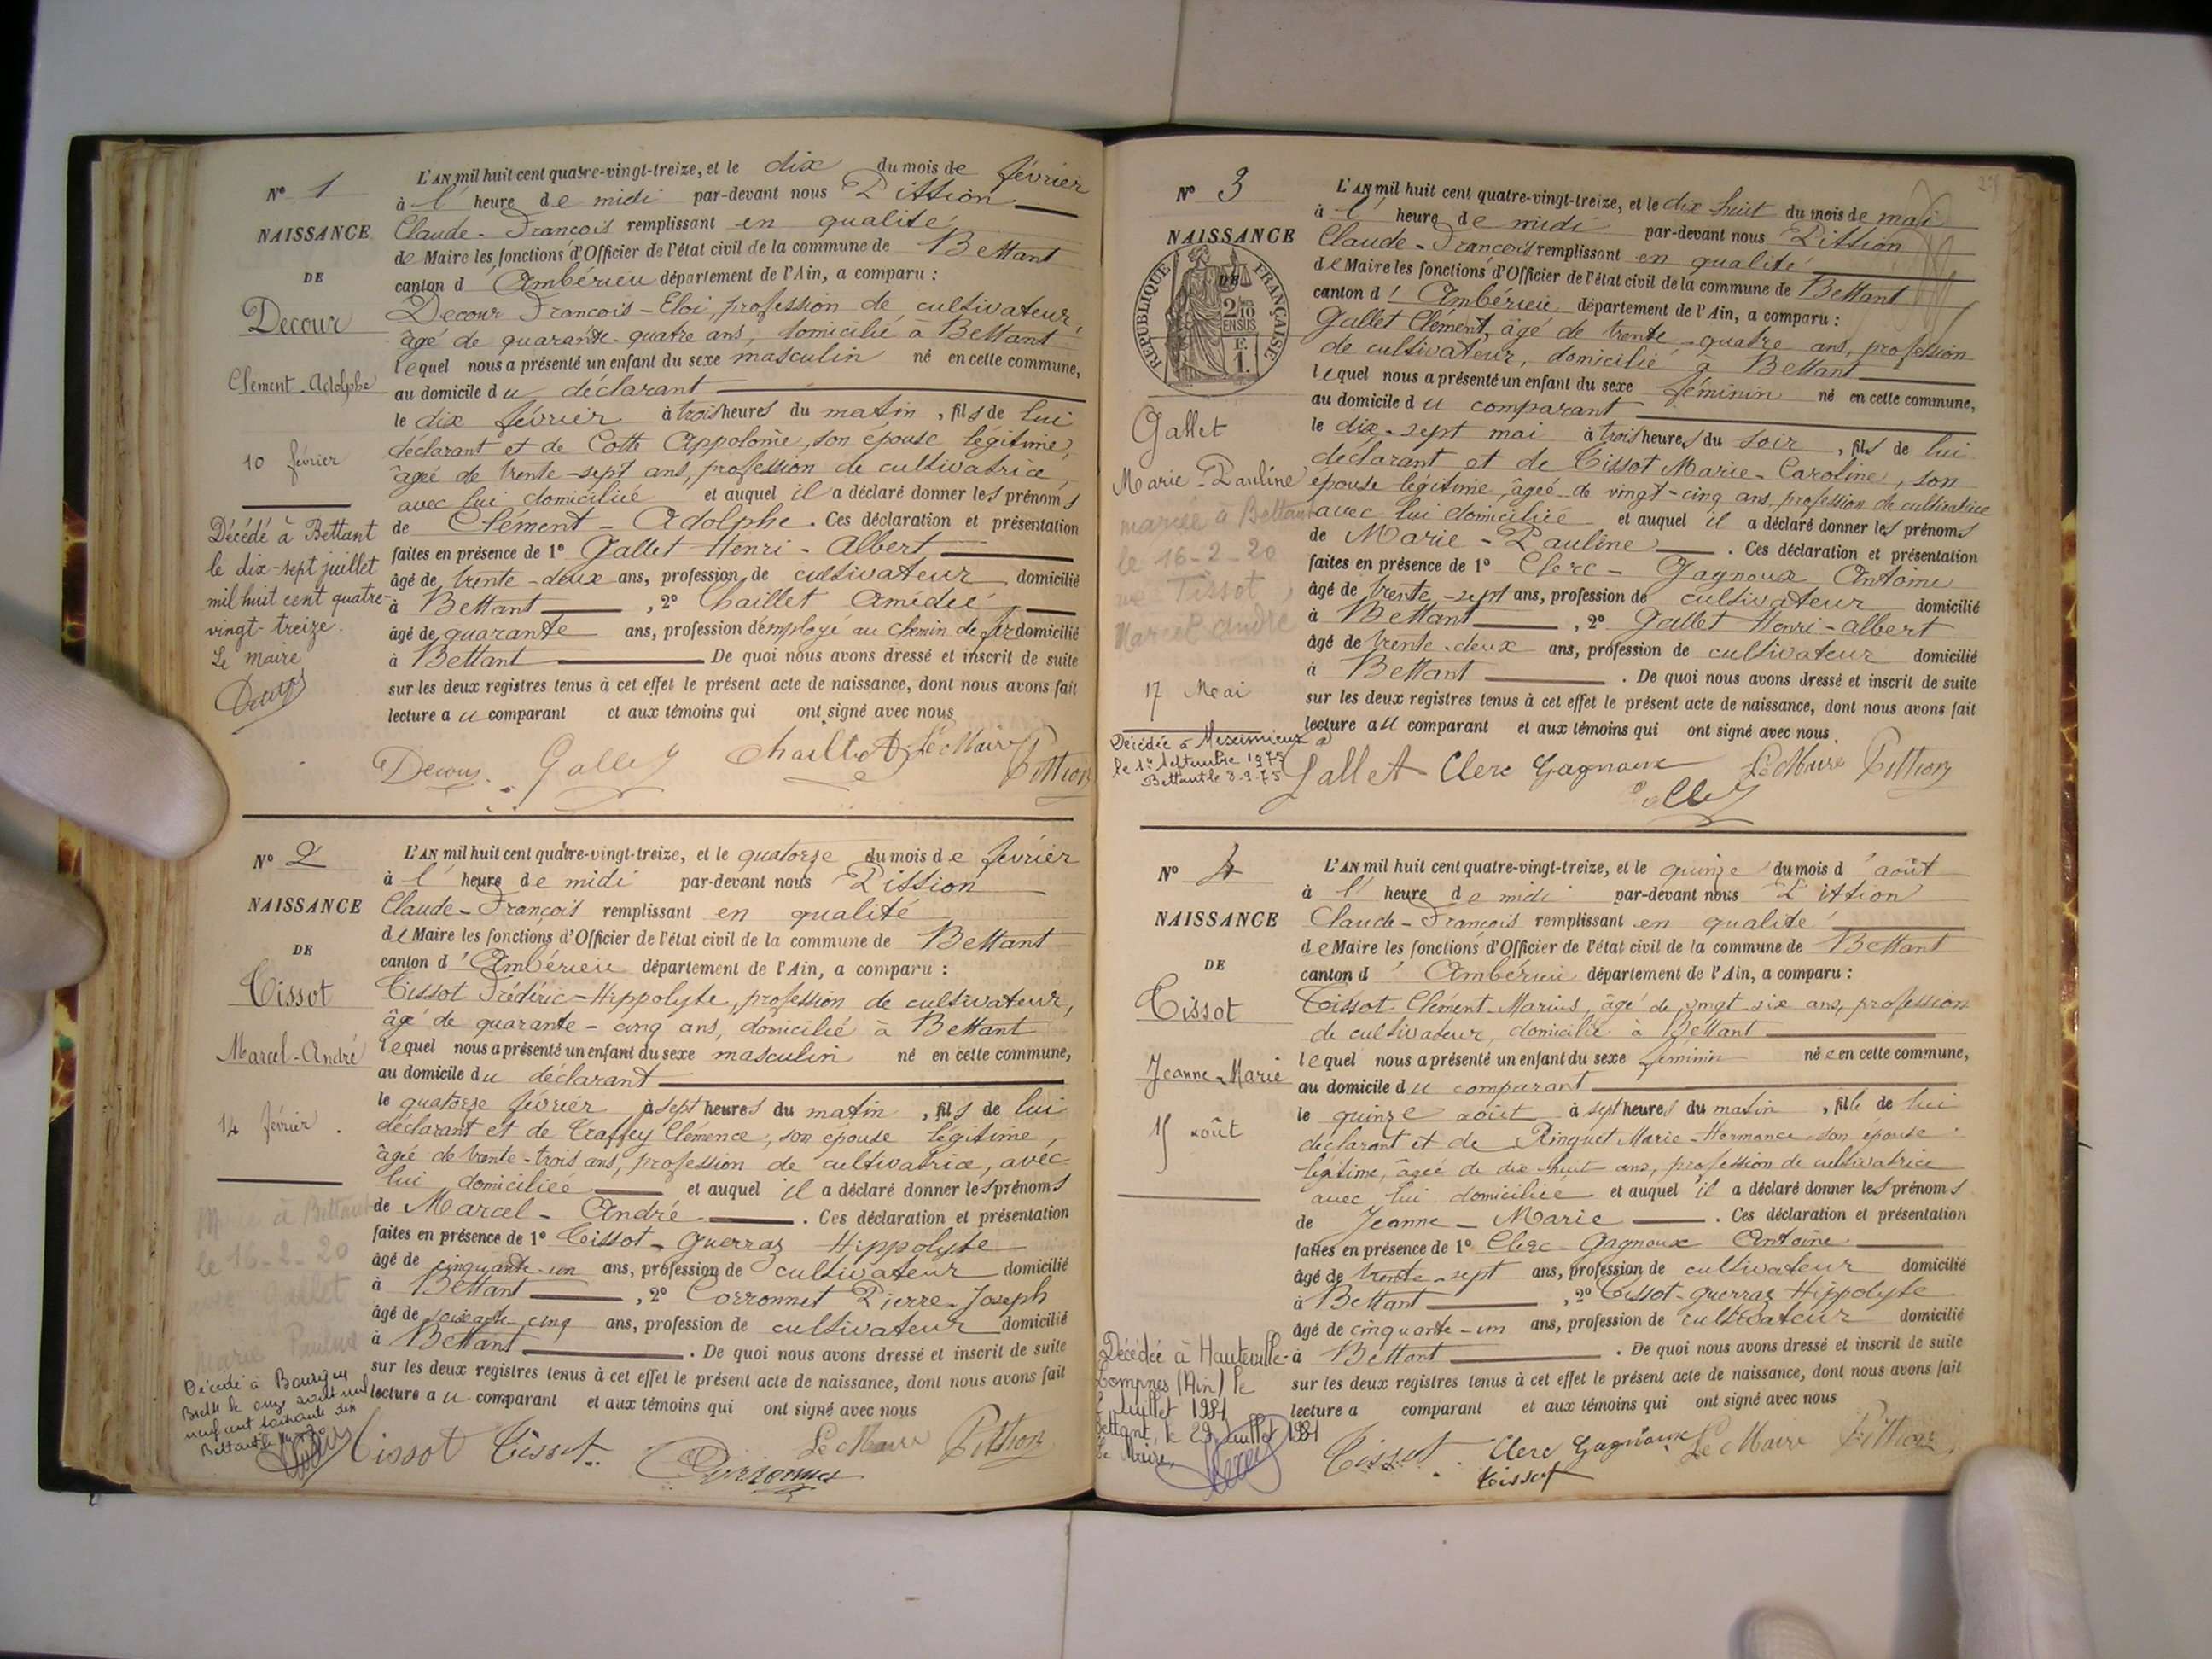 N° 1
NAISSANCE
DE
Decour
Clément-Adolphe
10 février
Décédé à Bettant
le dix-sept juillet
mil huit cent quatre-
vingt-treize.
Le maire
L'AN mil huit cent quatre-vingt-treize, et le dix du mois de février
à l' heure de midi par-devant nous Pittion
Claude-François remplissant en qualité
de Maire les fonctions d'Officier de l'état civil de la commune de Bettant
canton d'Ambérieu département de l'Ain, a comparu :
Decour François-Eloi, profession de cultivateur,
âgé de quarante-quatre ans, domicilié à Bettant
lequel nous a présenté un enfant du sexe masculin né en cette commune,
au domicile du déclarant
le dix février à trois heures du matin, fils de lui
déclarant et de Cotte Appolonie, son épouse légitime,
âgée de trente-sept ans, profession de cultivatrice,
avec lui domiciliée et auquel il a déclaré donner les prénoms
de Clément-Adolphe. Ces déclaration et présentation
faites en présence de 1° Gallet Henri-Albert
âgé de trente-deux ans, profession de cultivateur domicilié
à Bettant, 2° Chaillet Amédée
âgé de quarante ans, profession d'employé au chemin de fer domicilié
à Bettant De quoi nous avons dressé et inscrit de suite
sur les deux registres tenus à cet effet le présent acte de naissance, dont nous avons fait
lecture au comparant et aux témoins qui ont signé avec nous
Decour Gallet Chaillet A Le Maire Pittion
N° 2
NAISSANCE
DE
Tissot
Marcel-André
14 février.
à Bettant
le 16-2-20
Gallet
Marie Pauline
Décédé à Bourg en
L'AN mil huit cent quatre-vingt-treize, et le quatorze du mois de février
à l' heure de midi par-devant nous Pittion
Claude-François remplissant en qualité
de Maire les fonctions d'Officier de l'état civil de la commune de Bettant
canton d'Ambérieu département de l'Ain, a comparu :
Tissot Frédéric-Hippolyte, profession de cultivateur,
âgé de quarante-cinq ans, domicilié à Bettant
lequel nous a présenté un enfant du sexe masculin né en cette commune,
au domicile du déclarant
le quatorze février à sept heures du matin, fils de lui
déclarant et de Traffey Clémence, son épouse légitime,
âgée de trente-trois ans, profession de cultivatrice, avec
lui domiciliée et auquel il a déclaré donner les prénoms
de Marcel-André. Ces déclaration et présentation
faites en présence de 1° Tissot-Guerraz Hippolyte
âgé de cinquante-un ans, profession de cultivateur domicilié
à Bettant, 2° Corronnet Pierre-Joseph
âgé de soixante-cinq ans, profession de cultivateur domicilié
à Bettant. De quoi nous avons dressé et inscrit de suite
sur les deux registres tenus à cet effet le présent acte de naissance, dont nous avons fait
lecture au comparant et aux témoins qui ont signé avec nous
Tissot Tissot Le Maire Pittion
29
N° 3
NAISSANCE
DE
RÉPUBLIQUE FRANÇAISE
2/10 EN SUS
F. 1.
Gallet
Marie-Pauline
mariée à Bettant
le 16-2-20
Tissot,
Marcel André
17 Mai
Décédée à Meximieux
le 1er Septembre 1975
Bettant le 3-9-75
L'AN mil huit cent quatre-vingt-treize, et le dix huit du mois de mai
à l' heure de midi par-devant nous Pittion
Claude-François remplissant en qualité
de Maire les fonctions d'Officier de l'état civil de la commune de Bettant
canton d'Ambérieu département de l'Ain, a comparu :
Gallet Clément, âgé de trente-quatre ans, profession
de cultivateur, domicilié à Bettant
lequel nous a présenté un enfant du sexe féminin né en cette commune,
au domicile du comparant
le dix-sept mai à trois heures du soir, fils de lui
déclarant et de Tissot Marie-Caroline, son
épouse légitime, âgée de vingt-cinq ans, profession de cultivatrice
avec lui domiciliée et auquel il a déclaré donner les prénoms
de Marie-Pauline. Ces déclaration et présentation
faites en présence de 1° Clerc-Gagnoux Antoine
âgé de trente-sept ans, profession de cultivateur domicilié
à Bettant, 2° Gallet Henri-Albert
âgé de trente-deux ans, profession de cultivateur domicilié
à Bettant. De quoi nous avons dressé et inscrit de suite
sur les deux registres tenus à cet effet le présent acte de naissance, dont nous avons fait
lecture au comparant et aux témoins qui ont signé avec nous.
Gallet Clerc Gagnoux Le Maire Pittion
N° 4
NAISSANCE
DE
Tissot
Jeanne-Marie
15 août
Décédée à Hauteville-
Lompnes (Ain) le
Juillet 1981
Bettant, le 29 Juillet 1981
Le Maire,
L'AN mil huit cent quatre-vingt-treize, et le quinze du mois d'août
à l' heure de midi par-devant nous Pittion
Claude-François remplissant en qualité
de Maire les fonctions d'Officier de l'état civil de la commune de Bettant
canton d'Ambérieu département de l'Ain, a comparu :
Tissot Clément-Marius, âgé de vingt-six ans, profession
de cultivateur, domicilié à Bettant
lequel nous a présenté un enfant du sexe féminin née en cette commune,
au domicile du comparant
le quinze août à sept heures du matin, fille de lui
déclarant et de Ringuet Marie-Hermance son épouse
légitime, âgée de dix-huit ans, profession de cultivatrice
avec lui domiciliée et auquel il a déclaré donner les prénoms
de Jeanne-Marie. Ces déclaration et présentation
faites en présence de 1° Clerc-Gagnoux Antoine
âgé de trente-sept ans, profession de cultivateur domicilié
à Bettant, 2° Tissot-Guerraz Hippolyte
âgé de cinquante-un ans, profession de cultivateur domicilié
à Bettant. De quoi nous avons dressé et inscrit de suite
sur les deux registres tenus à cet effet le présent acte de naissance, dont nous avons fait
lecture a comparant et aux témoins qui ont signé avec nous
Tissot Clerc Gagnoux Le Maire Pittion
Tissot